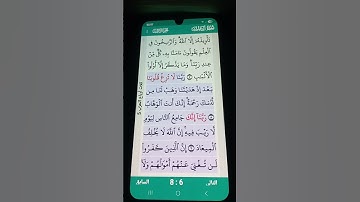 تَأْوِيلَهُۥٓ إِلَّا ٱللَّهُ وَٱلرَّٰسِخُونَ فِي
ٱلْعِلْمِ يَقُولُونَ ءَامَنَّا بِهِۦ كُلٌّ مِّنْ
عِندِ رَبِّنَا وَمَا يَذَّكَّرُ إِلَّآ أُوْلُواْ
ٱلْأَلْبَٰبِ ۝ رَبَّنَا لَا تُزِغْ قُلُوبَنَا
بَعْدَ إِذْ هَدَيْتَنَا وَهَبْ لَنَا مِن
لَّدُنكَ رَحْمَةً إِنَّكَ أَنتَ ٱلْوَهَّابُ
۝ رَبَّنَآ إِنَّكَ جَامِعُ ٱلنَّاسِ لِيَوْمٍ
لَّا رَيْبَ فِيهِ إِنَّ ٱللَّهَ لَا يُخْلِفُ
ٱلْمِيعَادَ ۝ إِنَّ ٱلَّذِينَ كَفَرُواْ
لَن تُغْنِيَ عَنْهُمْ أَمْوَٰلُهُمْ وَلَآ
التالي 8:6 السابق